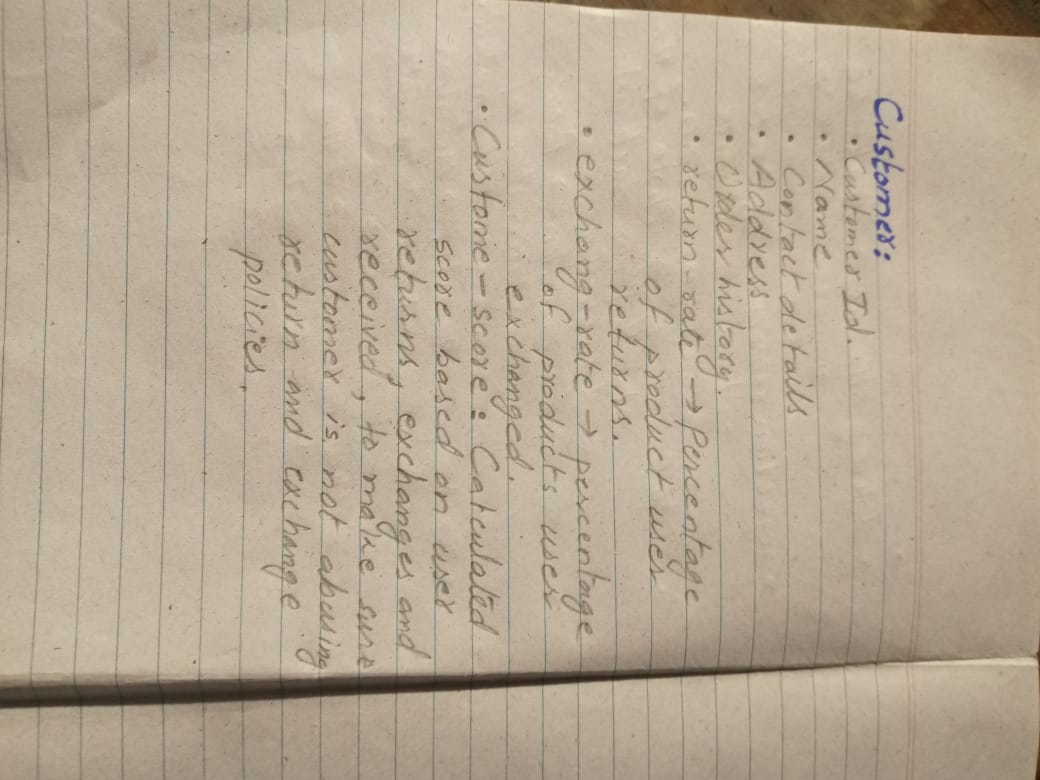 Customer:
• Customer Id.
• Name
• Contact details
• Address
• Order history.
• return-rate → Percentage
of product user
returns.
• exchang-rate → percentage
of products user
exchanged.
• Custome-score: Calculated
score based on user
returns, exchanges and
received, to make sure
customer is not abusing
return and exchange
policies.